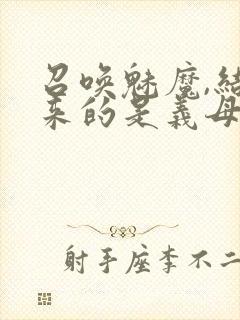 召唤魅魔,结
来的是义母
射手座李不二